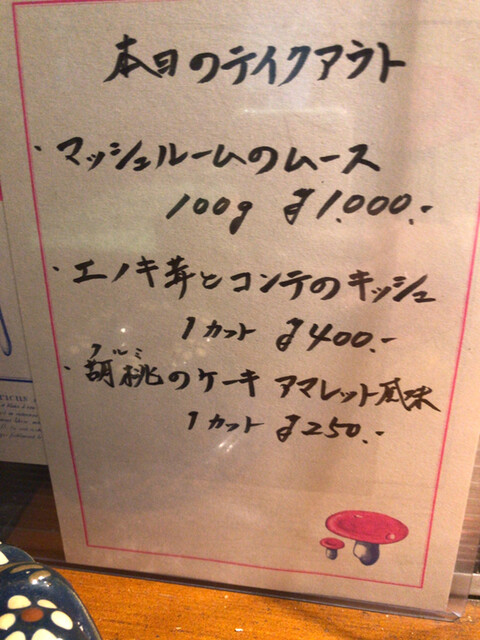 本日のテイクアウト
・マッシュルームのムース
100g ¥1.000.-
・エノキ茸とコンテのキッシュ
1カット ¥400.-
クルミ
・胡桃のケーキ アマレット風味
1カット ¥250.-